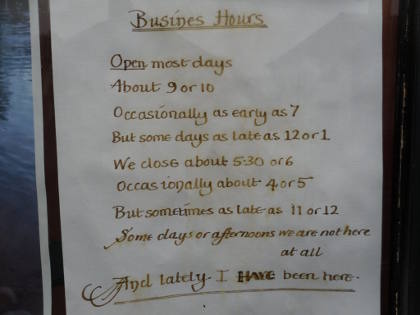 Busines Hours
Open most days
About 9 or 10
Occasionally as early as 7
But some days as late as 12 or 1
We close about 5·30 or 6
Occasionally about 4 or 5
But sometimes as late as 11 or 12
Some days or afternoons we are not here
at all
And lately I HAVE been here.